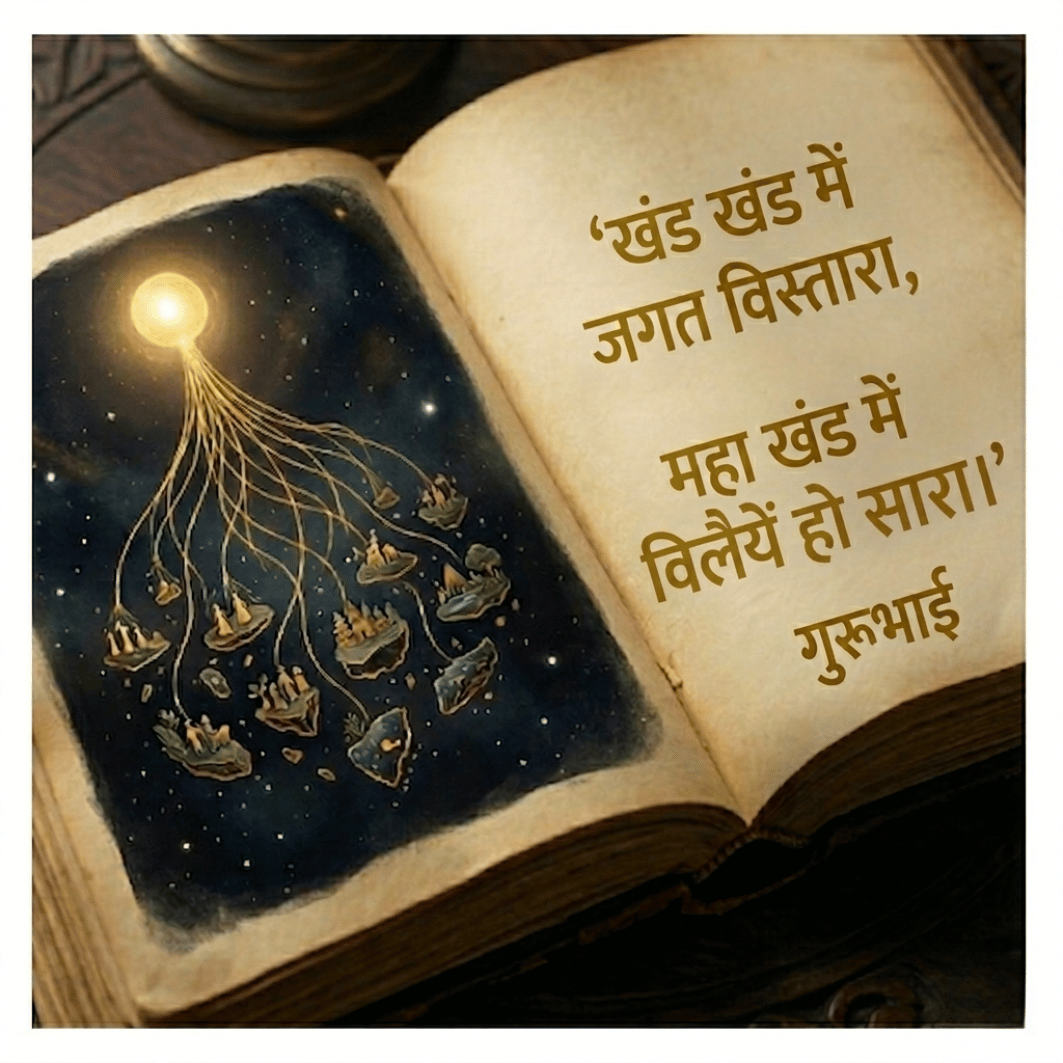 ‘खंड खंड में
जगत विस्तारा,
महा खंड में
विलैयें हो सारा।’
गुरूभाई